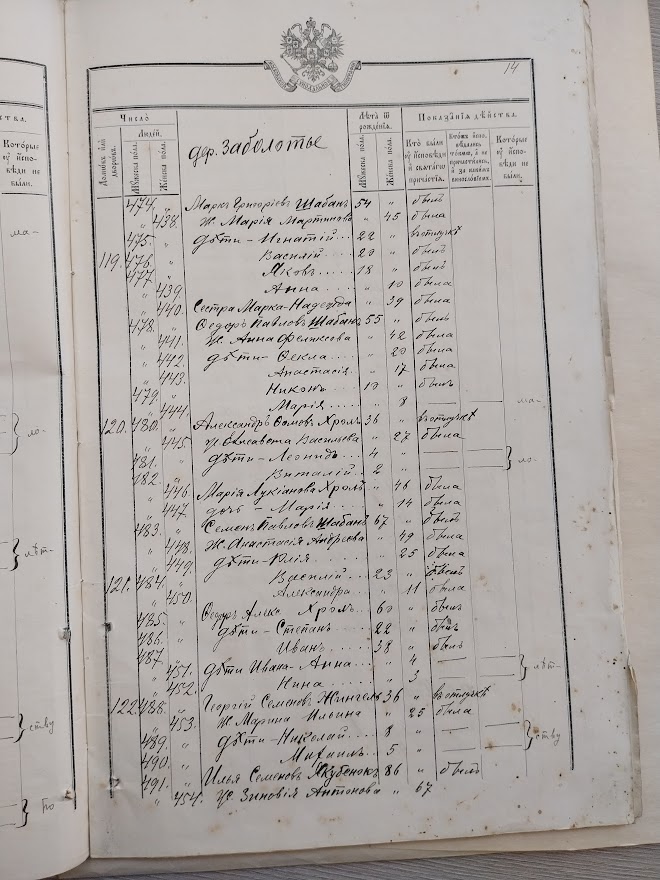 14
ства.
Число
Лѣта ѿ рожденїѧ.
Показанїѧ дѣйства.
Которые ѹ исповѣди не были.
Людей.
дер. Заболотье
Мѹжеска пола.
Женска пола.
Мѹжеска пола.
Женска пола.
Кто были ѹ исповѣди и свѧтагѡ причастїѧ.
Которые ѹ исповѣди не были.
474. " Маркъ Григорiевъ Шабанъ 54 " былъ
" 438. Ж. Марiя Мартинова " 45 была
475. " дѣти - Игнатiй 22 " въ отлучкѣ
119. 476. " Василiй 20 " былъ
477. " Яковъ 18 " былъ
" 439. Анна " 10 была
" 440. Сестра Марка - Надежда " 39 была
478. " Ѳедоръ Павловъ Шабанъ 55 " былъ
" 441. Ж. Анна Феликсова " 42 была
" 442. дѣти - Ѳекла " 20 была
" 443. Анастасiя " 17 была
479. " Никонъ 10 " былъ
" 444. Марiя " 8 — ма-
120. 480. " Александръ Ѳомовъ Хроль 36 " въ отлучкѣ
" 445. Ж. Елисавета Васильева " 27 была
481. " дѣти - Леонидъ 4 " — ло-
182. " Виталiй 2 " —
" 446. Марiя Лукiанова Хроль " 46 была
" 447. дочь - Марiя " 14 была
483. " Семенъ Павловъ Шабанъ 67 " былъ
" 448. Ж. Анастасiя Андреева " 49 была
" 449. дѣти - Юлiя " 25 была
121. 484. " Василiй 23 " былъ
" 450. Александра " 11 была
485. " Ѳедоръ Алекс. Хроль 60 " былъ
486. " дѣти - Степанъ 22 " былъ
487. " Иванъ 38 " былъ
" 451. дѣти Ивана - Анна " 4 — лѣт-
" 452. Нина " 3 —
122. 488. " Георгiй Семеновъ Жингель 36 " въ отлучкѣ
" 453. Ж. Марина Ильина " 25 была
489. " дѣти - Николай 8 " — ству
490. " Михаилъ 5 " —
491. " Илья Семеновъ Якубенокъ 86 " былъ
" 454. Ж. Зиновiя Антонова " 67
ма-
ло-
лѣт-
ству